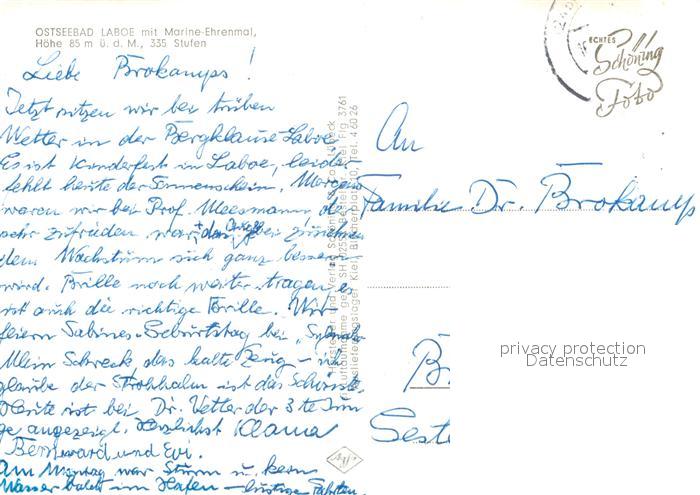 OSTSEEBAD LABOE mit Marine-Ehrenmal,
Höhe 85 m ü. d. M., 335 Stufen
Liebe Brokamps!
Jetzt sitzen wir bei trüben
Wetter in der Bergklause-Laboe
Es ist Kinderfest in Laboe, leider
fehlt heute der Sonnenschein. Morgens
waren wir bei Prof. Meesmann, der
sehr zufrieden war, das bei zunehm
dem Wachstum sich ganz bessern
wird. Brille noch weiter tragen, es
ist auch die richtige Brille. Wir
feiern Sabines-Geburtstag bei
Mein Schreck das kalte Zeug – ich
glaube der Strohhalm ist das Schönste.
Heute ist bei Dr. Vetter der 3te Jun
ge angezeigt. Herzlichst Klama
Bernward und Evi.
Am Montag war Sturm u. kein
Wasser bald im Hafen – lustige Fahrten.
ECHTES
Schöning
Foto
An
Familie Dr. Brokamp
B
Seste
privacy protection
Datenschutz